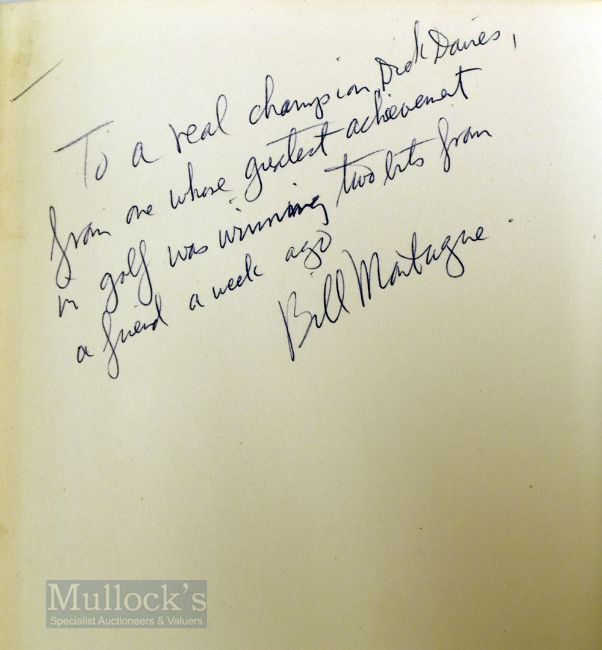 To a real champion, Dick Davies,
from one whose greatest achievement
in golf was winning two bits from
a friend a week ago
Bill Montague.
Mullock's
Specialist Auctioneers & Valuers